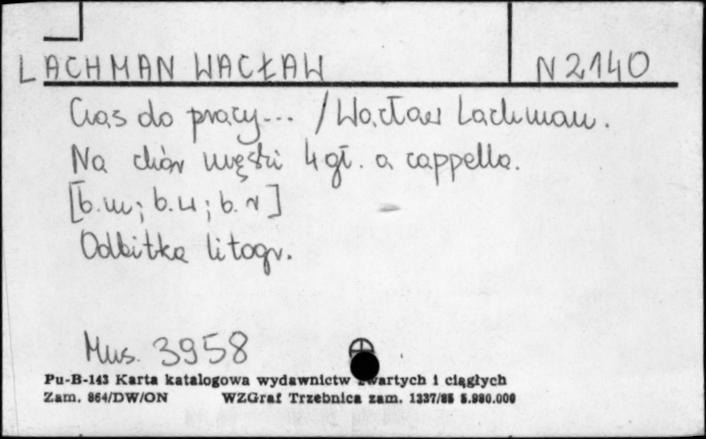 LACHMAN WACŁAW N 2140
Czas do pracy... / Wacław Lachman.
Na chór męski 4 gł. a cappella.
[b.m; b.w; b.r]
Odbitka litogr.
Mus. 3958
Pu-B-143 Karta katalogowa wydawnictw zwartych i ciągłych
Zam. 864/DW/ON WZGraf Trzebnica zam. 1337/85 5.980.000